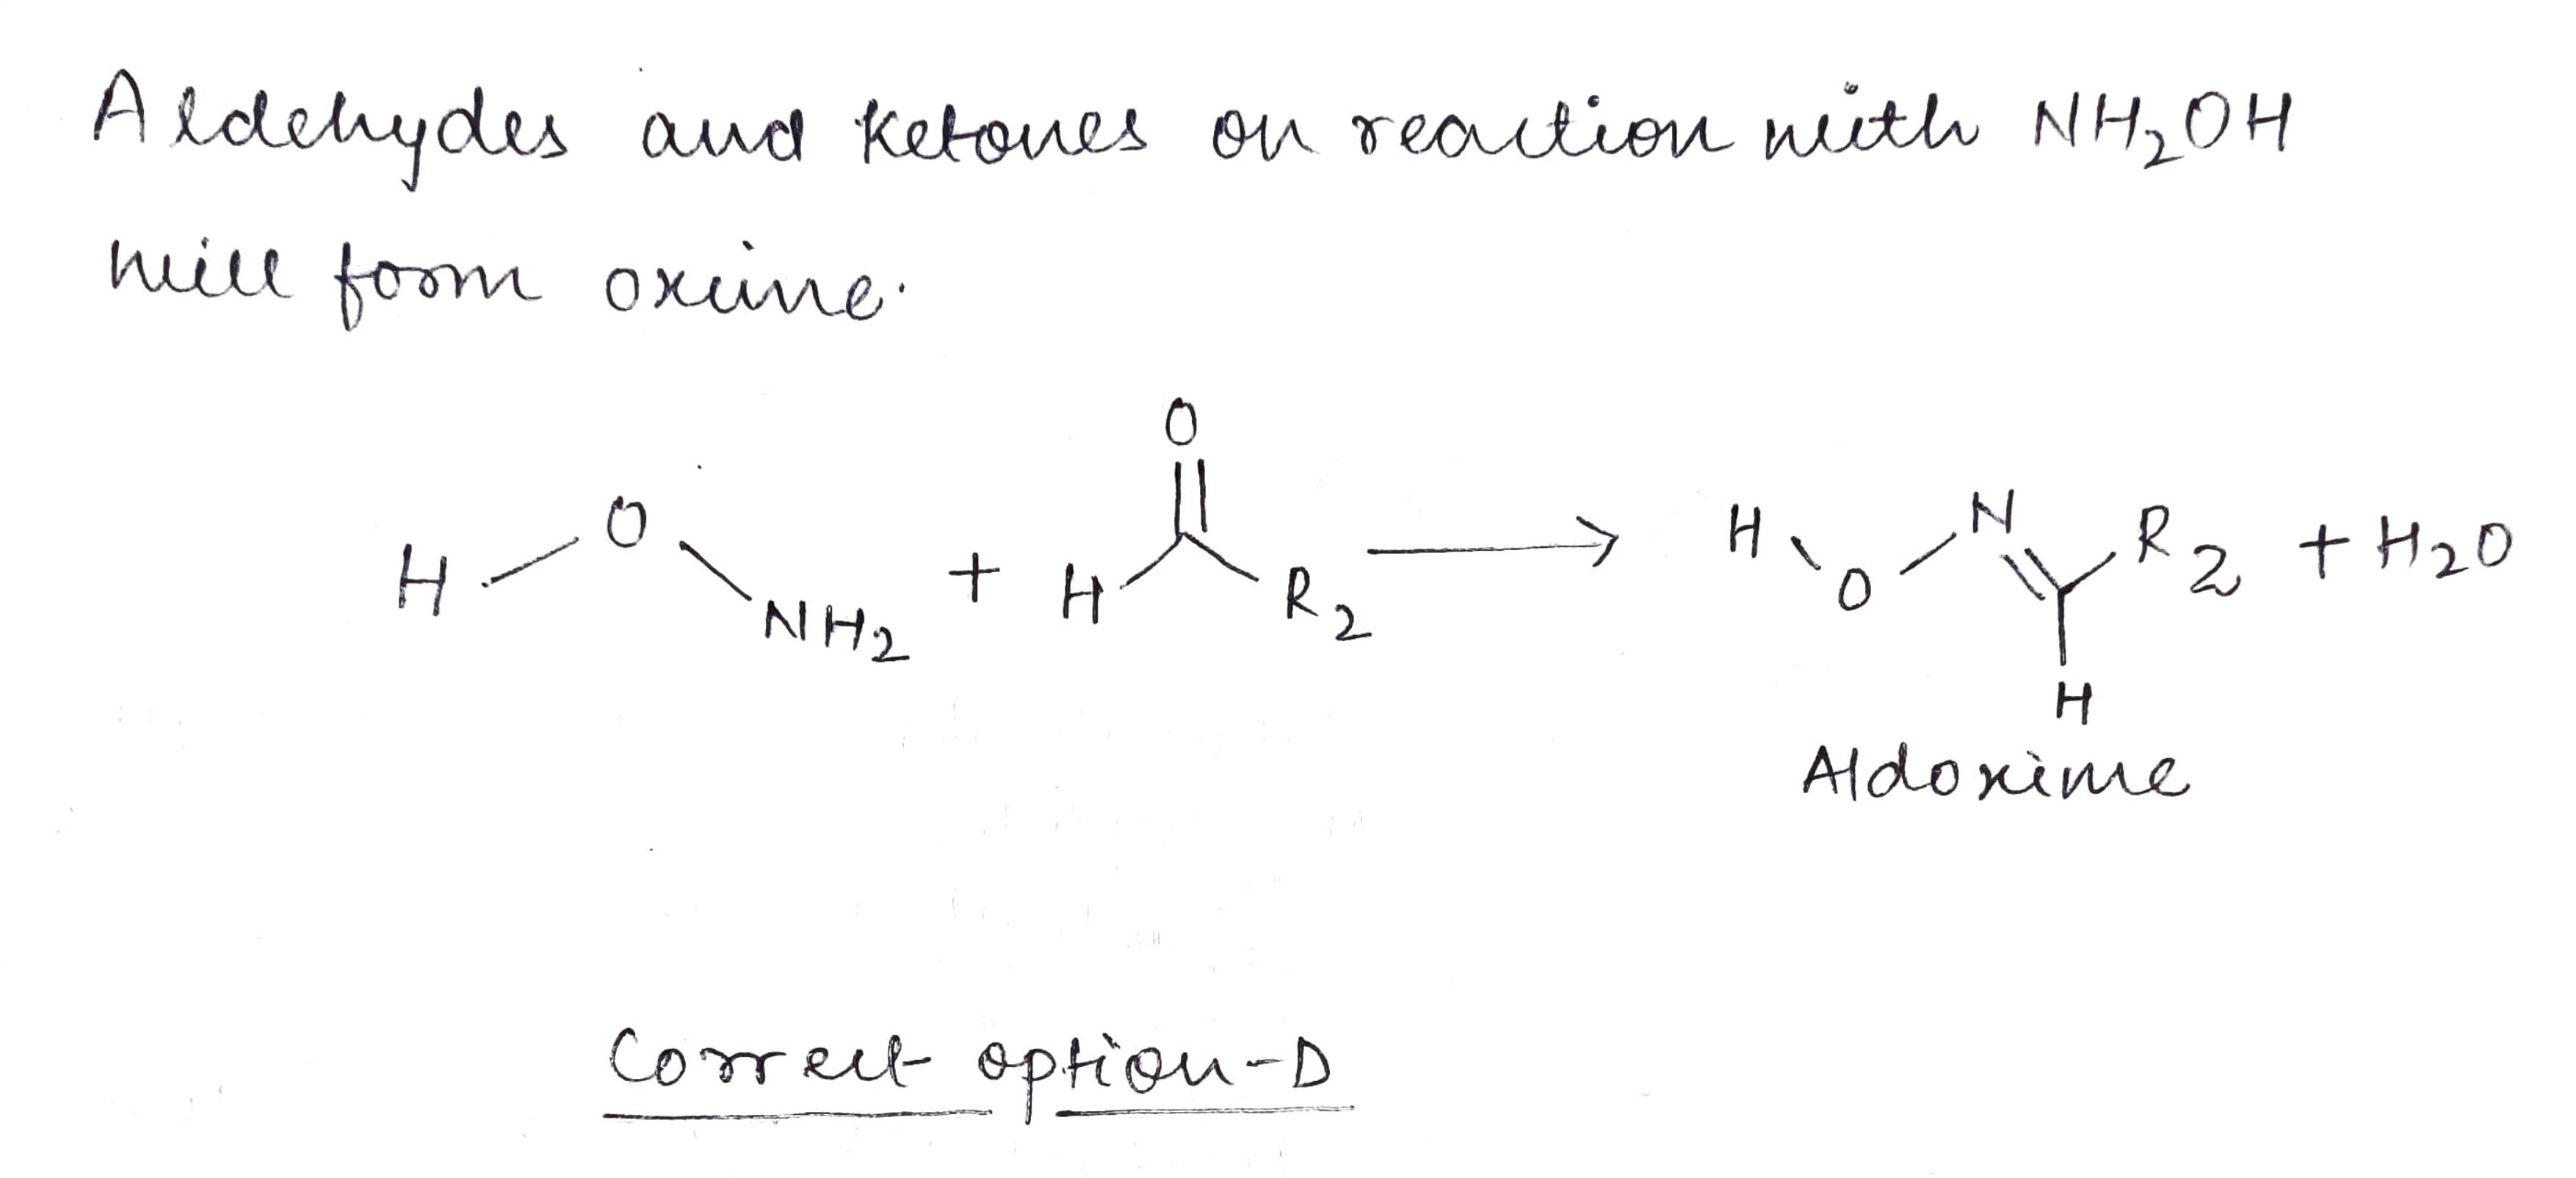 Aldehydes and Ketones on reaction with NH₂OH
will form oxime.
H O NH₂ + H O R₂ → H O N R₂ H + H₂O
Aldoxime
Correct option-D